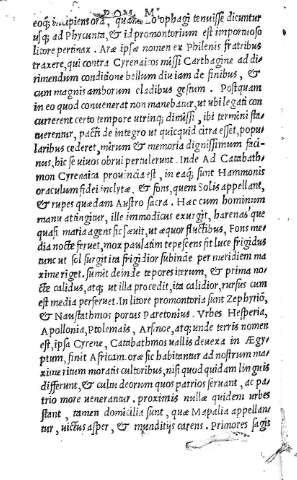 POM. M.
eoq; incipiens ora, quam Lotophagi tenuisse dicuntur
usq; ad Phycunta, & id promontorium est importuoso
litore pertinax. Aræ ipsæ nomen ex Philenis fratribus
traxere, qui contra Cyrenaicos missi Carthagine ad di
rimendum conditione bellum diu iam de finibus, &
cum magnis amborum cladibus gestum. Postquam
in eo quod convenerat non manebatur, ut ubi legati con
currerent certo tempore utrinq; dimissi, ibi termini sta
tuerentur, pacti de integro ut quicquid citra esset, popu
laribus cederet, mirum & memoria dignissimum faci-
nus, hic se uiuos obrui pertulerunt. Inde Ad Catabath
mon Cyrenaica prouincia est, in eaq; sunt Hammonis
oraculum fidei inclytæ, & fons, quem Solis appellant,
& rupes quædam Austro sacra. Hæc cum hominum
manu attingitur, ille immodicus exurgit, harenas'que
quasi maria agens sic sæuit, ut æquor fluctibus, Fons me
dia nocte feruet, mox paulatim tepescens fit luce frigidus
tunc ut sol surgit ita frigidior subinde per meridiem ma
xime riget. sumit deinde tepores iterum, & prima no-
cte calidus, atq; ut illa procedit, ita calidior, rursus cum
est media perferuet. In litore promontoria sunt Zephyriō,
& Naustathmos portus Parætonius. Vrbes Hesperia,
Apollonia, Ptolemais, Arsinoe, atq; unde terris nomen
est, ipsa Cyrene, Catabathmos uallis deuexa in Ægy-
ptum, finit Africam. oræ sic habitantur ad nostrum ma-
xime ritum moratis cultoribus, nisi quod quidam linguis
differunt, & cultu deorum quos patrios seruant, ac pa-
trio more uenerantur. proximis nullæ quidem urbes
stant, tamen domicilia sunt, quæ Mapalia appellan
tur, uictus asper, & munditijs carens. Primores sagis